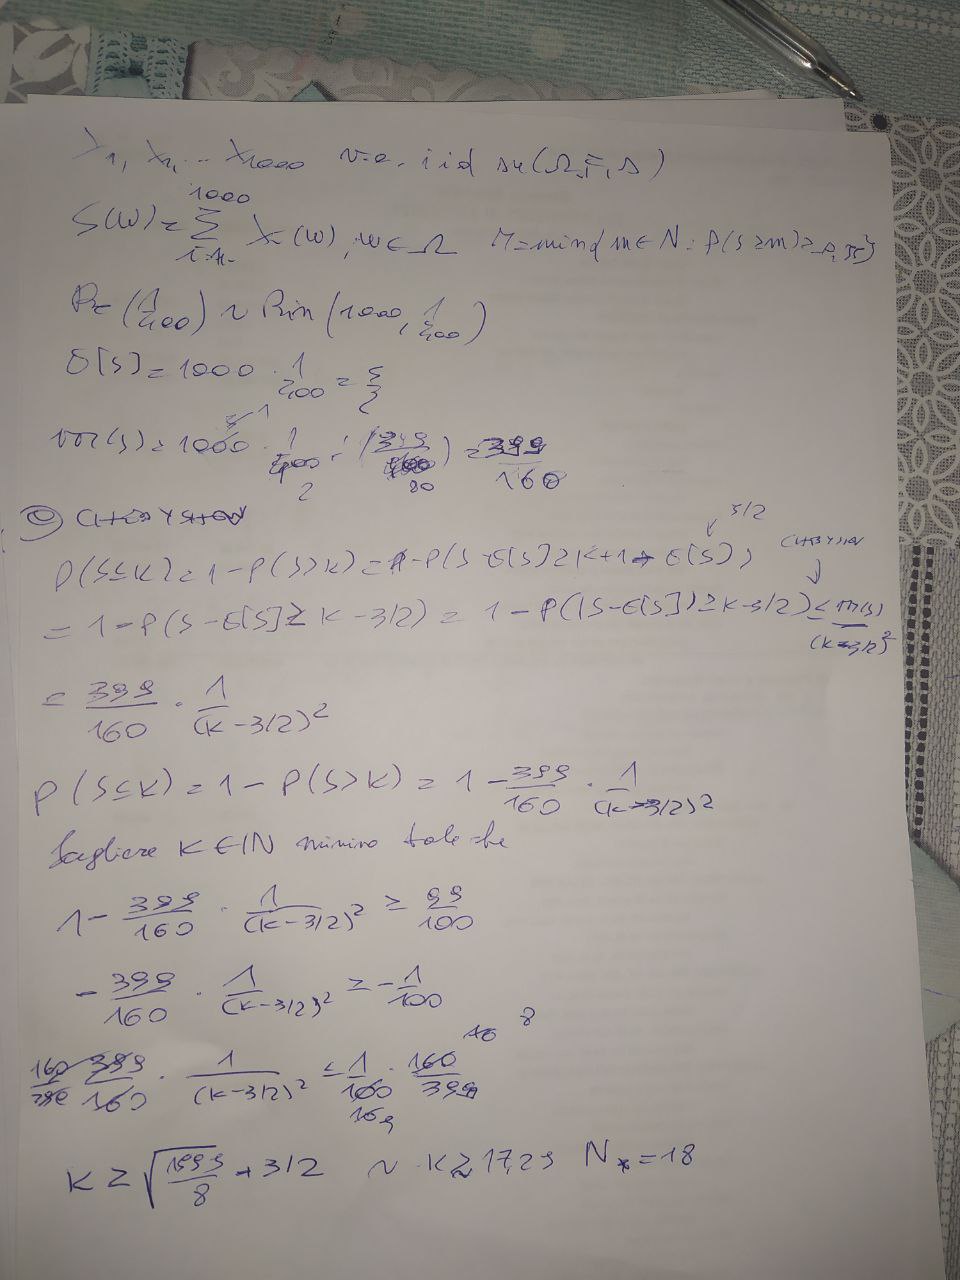 X₁, X₂, ... X₁₀₀₀ v.a. iid su (Ω, F, P)
S(ω) = Σ_{i=1}^{1000} Xᵢ(ω), ω ∈ Ω
Be(1/400) ~ Bin(1000, 1/400)
E[S] = 1000 · 1/400 = 5/2
var(S) = 1000 · 1/400 · (399/400) = 399/160
3/2
CHEBYSHEV
P(S≤K) = 1 - P(S>K) = 1 - P(S - E[S] ≥ K+1 - E[S])
= 1 - P(S - E[S] ≥ K - 3/2) = 1 - P(|S - E[S]| ≥ K - 3/2) ≤ var(S)/(K-3/2)²
= 399/160 · 1/(K-3/2)²
P(S≤K) = 1 - P(S>K) = 1 - 399/160 · 1/(K-3/2)²
Scegliere K ∈ IN minimo tale che
1 - 399/160 · 1/(K-3/2)² ≥ 99/100
- 399/160 · 1/(K-3/2)² ≥ - 1/100
160/399 · 399/160 · 1/(K-3/2)² ≤ 1/100 · 160/399
K ≥ √(1995/8) + 3/2 ~ K ≥ 17,29 N* = 18